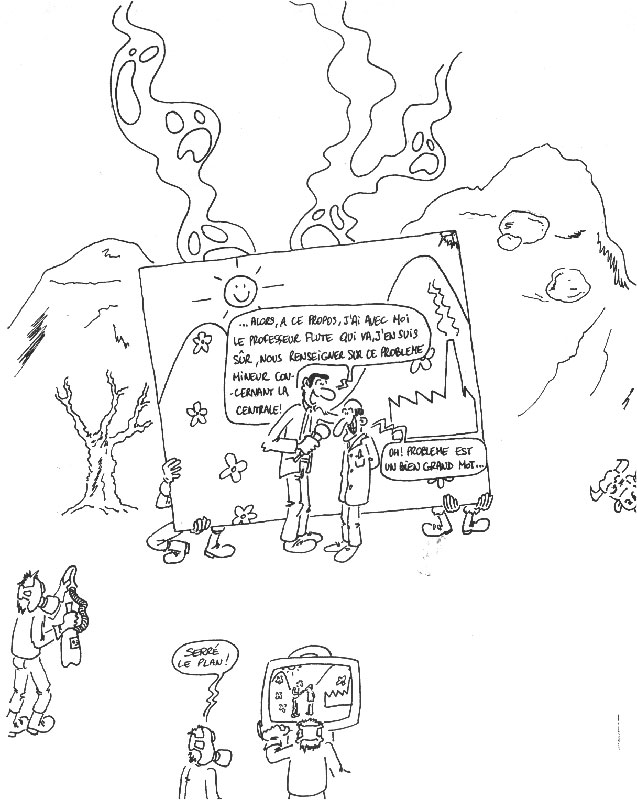 ...ALORS, A CE PROPOS, J'AI AVEC MOI
LE PROFESSEUR FLUTE QUI VA, J'EN SUIS
SÛR, NOUS RENSEIGNER SUR CE PROBLEME
MINEUR CON-
-CERNANT LA
CENTRALE!
OH! PROBLEME EST
UN BIEN GRAND MOT...
SERRÉ
LE PLAN!